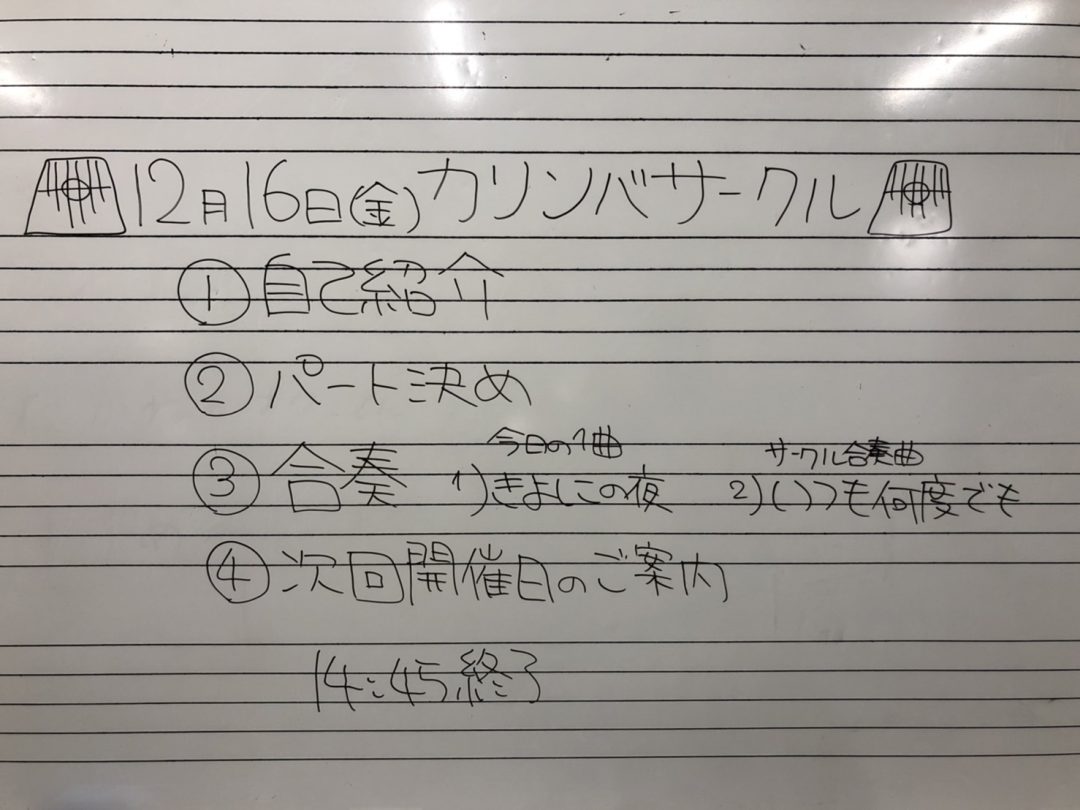 12月16日(金)カリンバサークル
①自己紹介
②パート決め
今日の1曲 サークル合奏曲
③合奏 1)きよしこの夜 2)いつも何度でも
④次回開催日のご案内
14:45終了